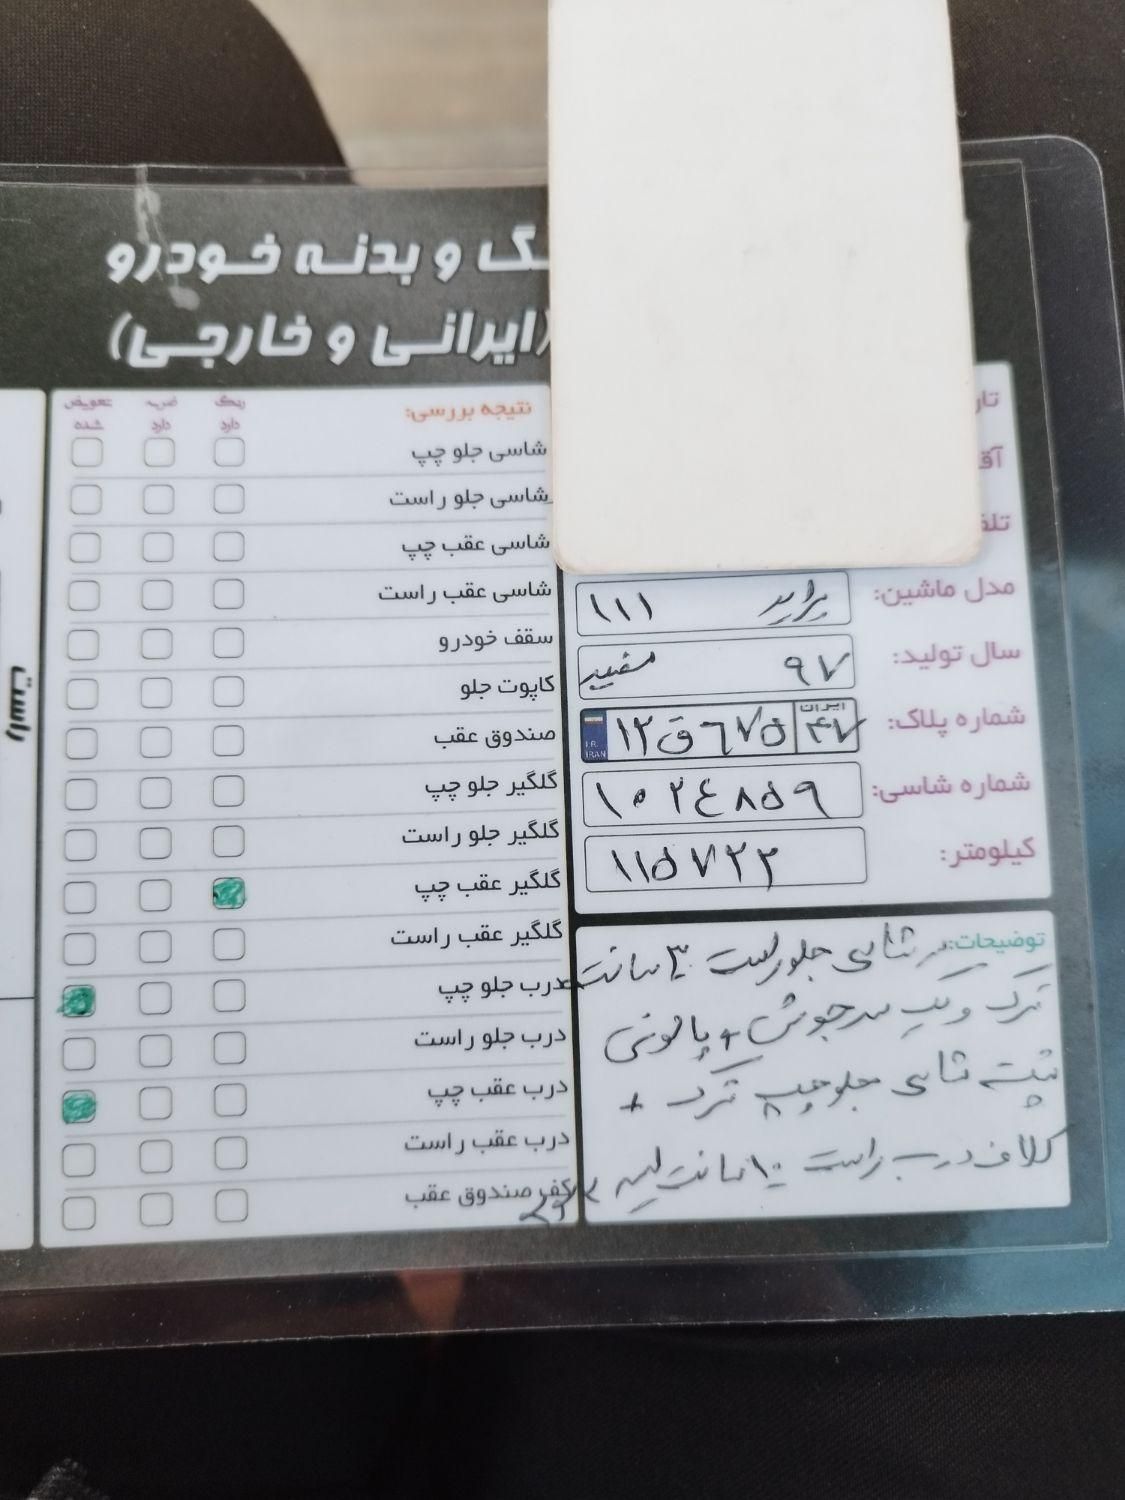 گ و بدنه خودرو
(ایرانی و خارجی)
مدل ماشین: پراید ۱۱۱
سال تولید: ۹۷ سفید
شماره پلاک: ۱۲ ق ۶۷۵ ایران ۴۷
I.R. IRAN
شماره شاسی: ۱۰۲۴۸۵۹
کیلومتر: ۱۱۵۷۲۲
توضیحات: سر شاسی جلو راست ۳ سانت
ترک و یک سرجوش + پالونی
پشت شاسی جلو چپ ترک +
کلاف درب راست ۱۰ سانت لیسه
نتیجه بررسی: رنگ دارد ضربه دارد تعویض شده
شاسی جلو چپ
شاسی جلو راست
شاسی عقب چپ
شاسی عقب راست
سقف خودرو
کاپوت جلو
صندوق عقب
گلگیر جلو چپ
گلگیر جلو راست
گلگیر عقب چپ
گلگیر عقب راست
درب جلو چپ
درب جلو راست
درب عقب چپ
درب عقب راست
کف صندوق عقب
راست